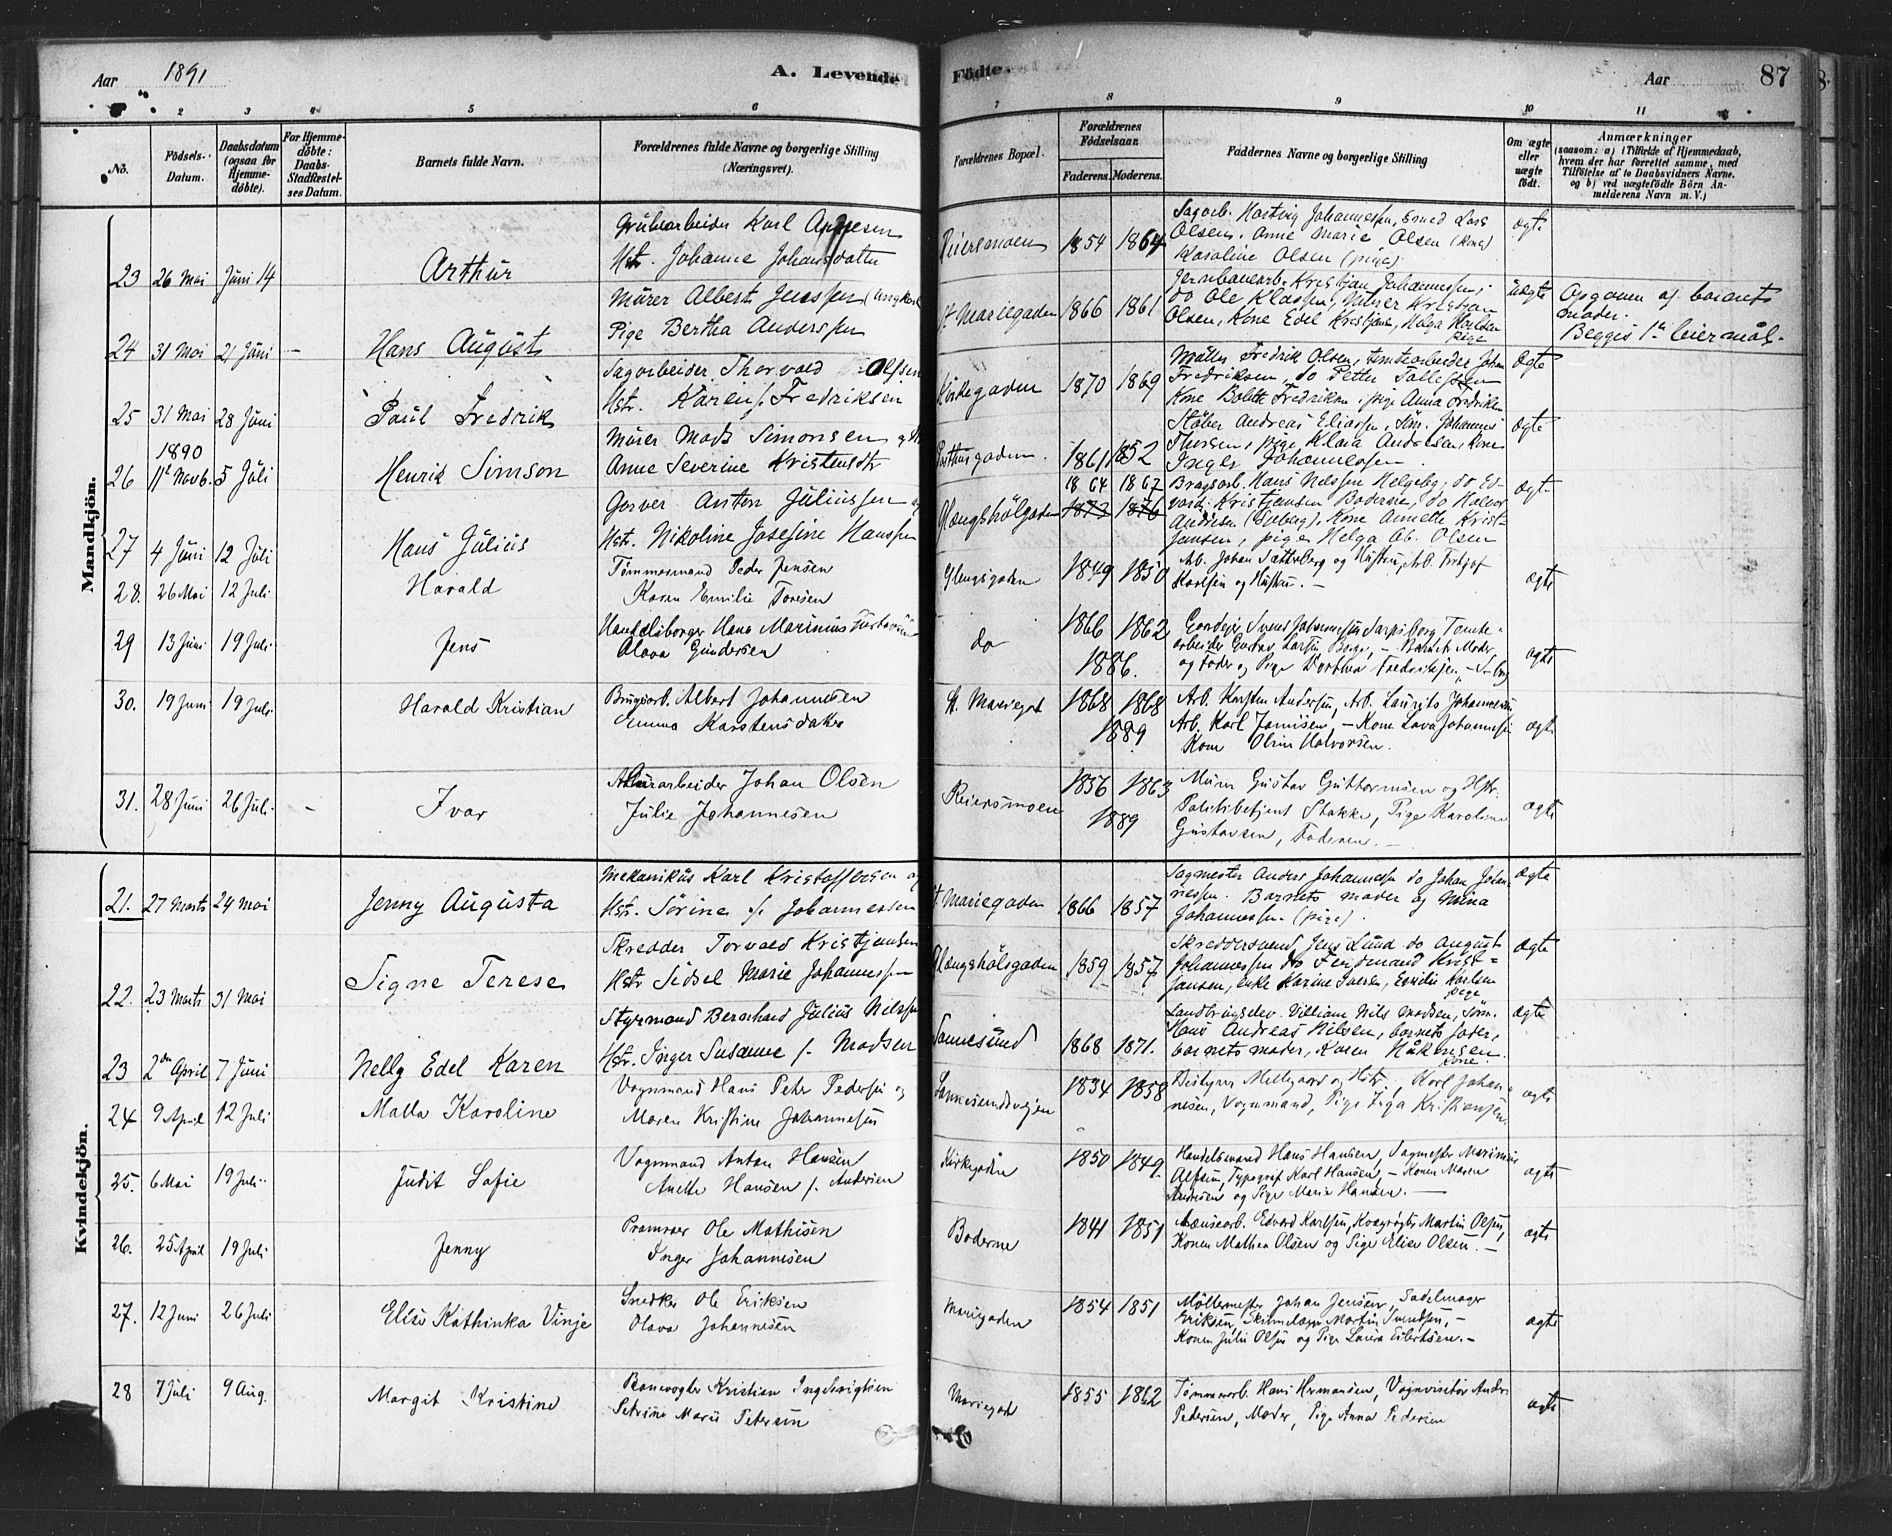 Aar 1891 A. Levende Födte. Aar 87
2 3 4 5 6 7 8 9 10 11
No. Födsels-Datum. Daabsdatum (ogsaa for Hjemmedöbte). For Hjemmedöbte: Daabs-Stadfæstelses Datum. Barnets fulde Navn. Forældrenes fulde Navne og borgerlige Stilling (Næringsvei). Forældrenes Bopæl. Forældrenes Födselsaar. Faderens. Moderens. Faddernes Navne og borgerlige Stilling Om ægte eller uægte födt. Anmærkninger (saasom: a) i Tilfælde af Hjemmedaab, hvem der har forrettet samme, med Tilföielse af to Daabsvidners Navne. og b) ved uægtefödte Börn Anmelderens Navn m. V.)
Mandkjön.
23 26 Mai Juni 14 Arthur
Grubearbeider Karl
Hstr. Johanne Johansdatter
Reiersmoen 1854 1864
Sagarb. Hartvig Johannessen, Smed Lars
Olsen. Anne Marie Olsen (kone)
Karoline Olsen (pige)
ægte
24 31 Mai 21 Juni - Hans August
Mürer Albert Jenssen (ungkarl
Pige Bertha Anderssen
St Mariegaden 1866 1861
Jernbanearb. Kristjan Johannessen,
do Ole Klassen, Mürer Kristjan
Olsen, Kone Edel Kristjansen, Helga Karlsen
pige
uægte
Opgaven af barnets
moder.
Begges 1ste leiermål.
25 31 Mai 28 Juni Paul Fredrik
Sagarbeider Thorvald Olssen
Hstr. Karen f. Fredriksen
Kirkegaden 1870 1869
Möller Fredrik Olsen, tomtearbeider Johan
Fredriksen, do Petter Tollefsen
Kone Bolette Fredriksen, pige Anna Fredriksen
Ægte
26 1890 11te Novb. 5 Juli Henrik Simson
Mürer Mads Simonsen og
Anne Severine Kristensdtr
1861 1852
Stöber Andreas Eliassen, Töm. Johannes
Thorsen, pige Klara Andersen, kone
Inger Johannessen.
ægte
27 4 Juni 12 Juli Hans Julius
Garver Anton Juliussen og
Hstr. Nikoline Josefine Hanssen
Glengshölgaden 1864 1867
1873 1876
Brugsarb. Hans Nilssen Helgeby, do Ed-
vard Kristjansen Boderne, do Halvor
Andersen, Kone Annette Krist-
jansen, pige Helga Ol. Olsen
ægte
28. 26 Mai 12 Juli Harald
Tömmermand Peder Jensen
Karen Emilie Toresen
Glengsgaden 1849 1850
Arb. Johan Sætterberg og Hustru, Arb. Fritjof
Karlsen og Hustru. -
ægte
29 13 Juni 19 Juli Jens
Handelsborger Hans Marinius
Olava Gundersen
do 1866 1862
1886.
Gaardeier Svend Johannessen Sarpsborg, Tomte-
arbeider Gustav Larsen Borge, - Barnets Moder
og Fader og Pige Dorthea Fredriksen -
ægte
30. 19 Juni 19 Juli Harald Kristian
Brugsarb. Albert Johannesen
Emma Karstensdatter
St. Mariegd 1868 1868
1889
Arb. Karsten Andersen, Arb. Laurits Johannessen
Arb. Karl Jonsisen, - Kone Lava Johannessen
Kone Olsine Halvorsen.
ægte
31. 28 Juni 26 Juli - Ivar
Murarbeider Johan Olsen
Julie Johannesen
Reiersmoen 1856 1863
1889
Murer Gustav Guttormsen og Hstr.
Politibetjent Stokke, Pige Karoline
Gustavsen, Faderen. -
ægte
Kvindekjön.
21. 27 Marts 24 Mai Jenny Augusta
Mekanikus Karl Kristoffersen og
Hstr. Sörine f. Johannessen
St Mariegaden 1866 1857
Sagmester Anders Johannessen do Johan Johan-
nessen. Barnets moder og Mina
Johannessen (pige).
Ægte
22. 23 Marts 31 Mai Signe Terese
Skredder Torvald Kristjansen
Hstr Sidsel Marie Johannessen
Glengshölsgaden 1859 1857
Skreddersvend Jens Lund do August
Johannessen do Ferdinand Krist-
jansen, enke Karine Iversen, Emilie Karlsen
pige
Ægte
23 2den April 7 Juni Nelly Edel Karen
Styrmand Bernhard Julius Nilssen
Hstr. Inger Susanne f. Madsen
Sannesund 1868 1871.
Landbrugselev. Villiam Nils Madsen, Töm.
Hans Andreas Nilsen, barnets fader,
barnets moder, Karen Håkonsen.
kone
ægte
24 9 April 12 Juli Malla Karoline
Vognmand Hans Peter Pedersen og
Maren Kristine Johannesen
Sannesundsveien 1834 1858
Bestyrer Mellgaard og Hstr., Karl Johan-
nesen, Vognmand, Pige Inga Kristiansen.
ægte
25. 6 Mai 19 Juli Judit Sofie
Vognmand Anton Hansen
Anette Hansen f. Andersen
Kirkegaden 1850 1849.
Handelsmand Hans Hansen, Sagmester Marinius
Alfsen, Typograf Karl Hansen - Konen Maren
Andersen og Pige Maria Hansen. -
ægte
26. 25 April 19 Juli Jenny
Pramroer Ole Mathisen
Inger Johannesen
Boderne 1841 1851
Lænsearb. Edvard Karlsen, Kvægrögter Martin Olsen,
Konen Mathea Olsen og Pige Elise Olsen. -
ægte
27. 12 Juni 26 Juli Elise Kathinka Vinje
Snedker Ole Eriksen
Olava Johannesen
Mariegaden 1854 1851
Möllermester Johan Jensen, Sadelmager
Eriksen, Martin Svendsen, -
Konen Juli Olsen og Pige Laura Eilertsen. -
ægte
28 7 Juli 9 Aug. Margit Kristine
Banevogter Kristian Ingebrigtsen
Petrine Marie Petersen
Mariegd 1855 1862
Tömmerarb. Hans Hermansen, Vognvisitör Anders
Pedersen, Moder, Pige Anna Pedersen
ægte